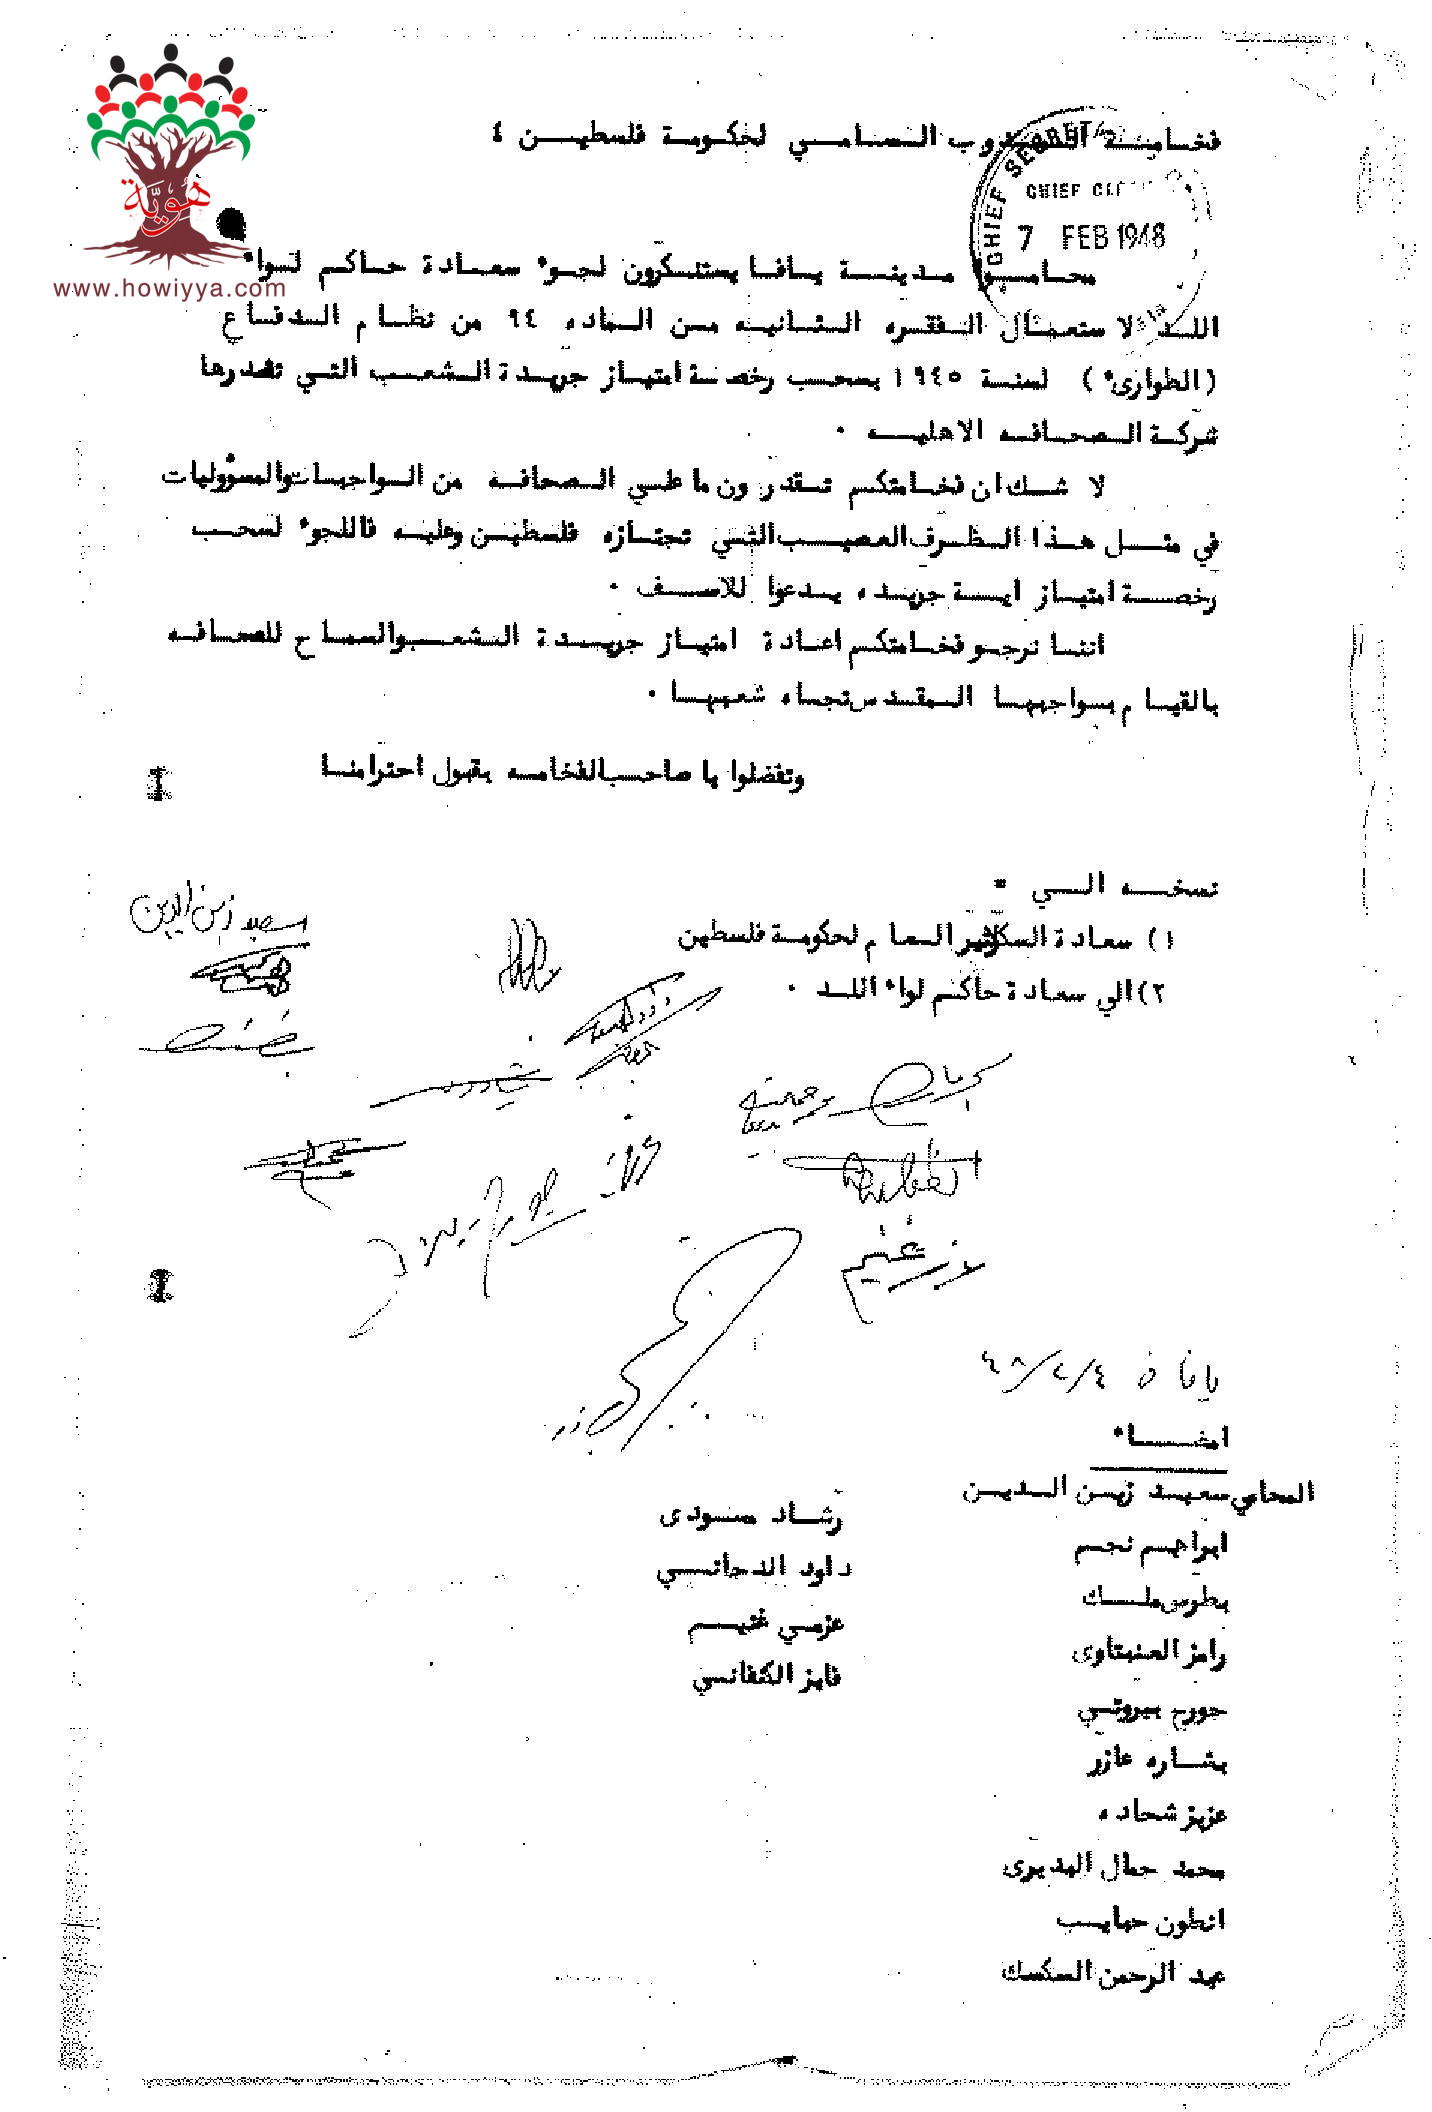 هُوِيَّة
www.howiyya.com
فخامة المندوب السامي لحكومة فلسطين ٤
CHIEF SECRETA
CHIEF CLE
7 FEB 1948
محاموا مدينة يافا يستنكرون لجوء سعادة حاكم لواء
اللد لاستعمال الفقره الثانيه من الماده ٩٤ من نظام الدفاع
(الطوارىء) لسنة ١٩٤٥ بسحب رخصة امتياز جريدة الشعب التي تصدرها
شركة الصحافه الاهليه ٠
لا شك ان فخامتكم تقدرون ما على الصحافه من الواجبات والمسؤوليات
في مثل هذا الظرف العصيب الذي تجتازه فلسطين وعليه فاللجوء لسحب
رخصة امتياز اية جريده يدعوا للاسف ٠
اننا نرجو فخامتكم اعادة امتياز جريدة الشعب والسماح للصحافه
بالقيام بواجبها المقدس تجاه شعبها ٠
وتفضلوا يا صاحب الفخامه بقبول احترامنا
نسخه الى *
١) سعادة السكرتير العام لحكومة فلسطين
٢) الى سعادة حاكم لواء اللد ٠
سعيد زين الدين
يافا في ٤/٢/٤٨
امضاء
المحامي سعيد زين الدين
ابراهيم نجم
بطرس ملك
رامز العنبتاوى
جورج بيروتي
بشاره عازر
عزيز شحاده
محمد جمال البديرى
انطون حبايب
عبد الرحمن السكسك
رشاد مسودى
داود الدجاني
عزمي غنيم
فايز الكنفاني